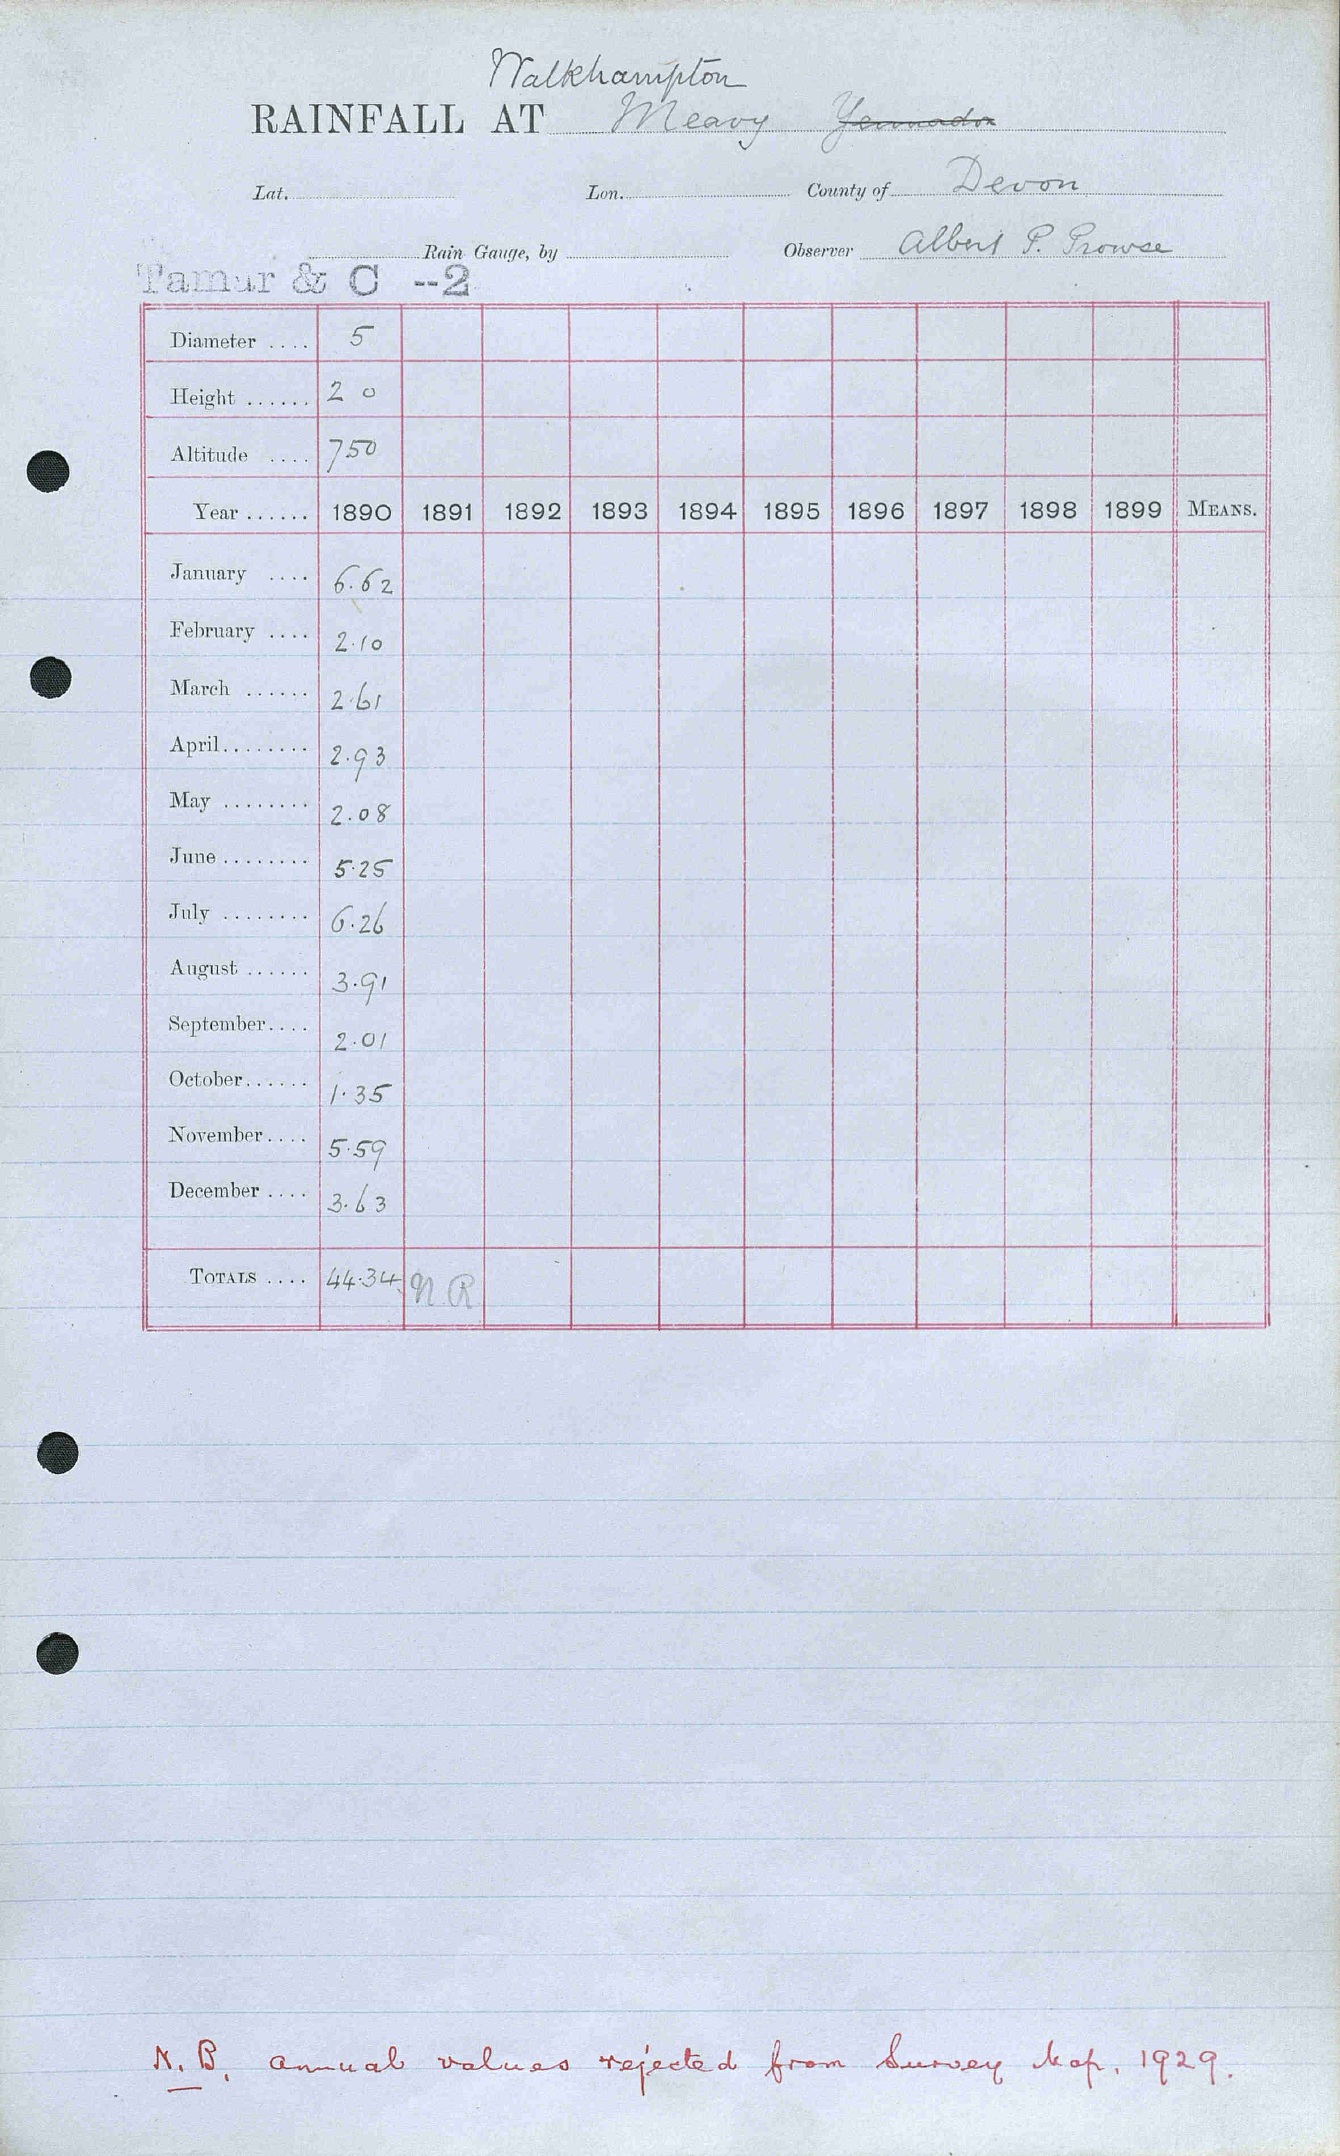 Walkhampton
RAINFALL AT Meavy Yennadon
Lat. Lon. County of Devon
Rain Gauge, by Observer Albert P. Prowse
Tamar & C --2
Diameter .... 5
Height ...... 2 0
Altitude .... 750
Year ...... 1890 1891 1892 1893 1894 1895 1896 1897 1898 1899 MEANS.
January .... 6.62
February .... 2.10
March ...... 2.61
April........ 2.93
May ........ 2.08
June ........ 5.25
July ........ 6.26
August ...... 3.91
September.... 2.01
October...... 1.35
November.... 5.59
December .... 3.63
TOTALS .... 44.34 N R
N.B. annual values rejected from Survey Map. 1929.